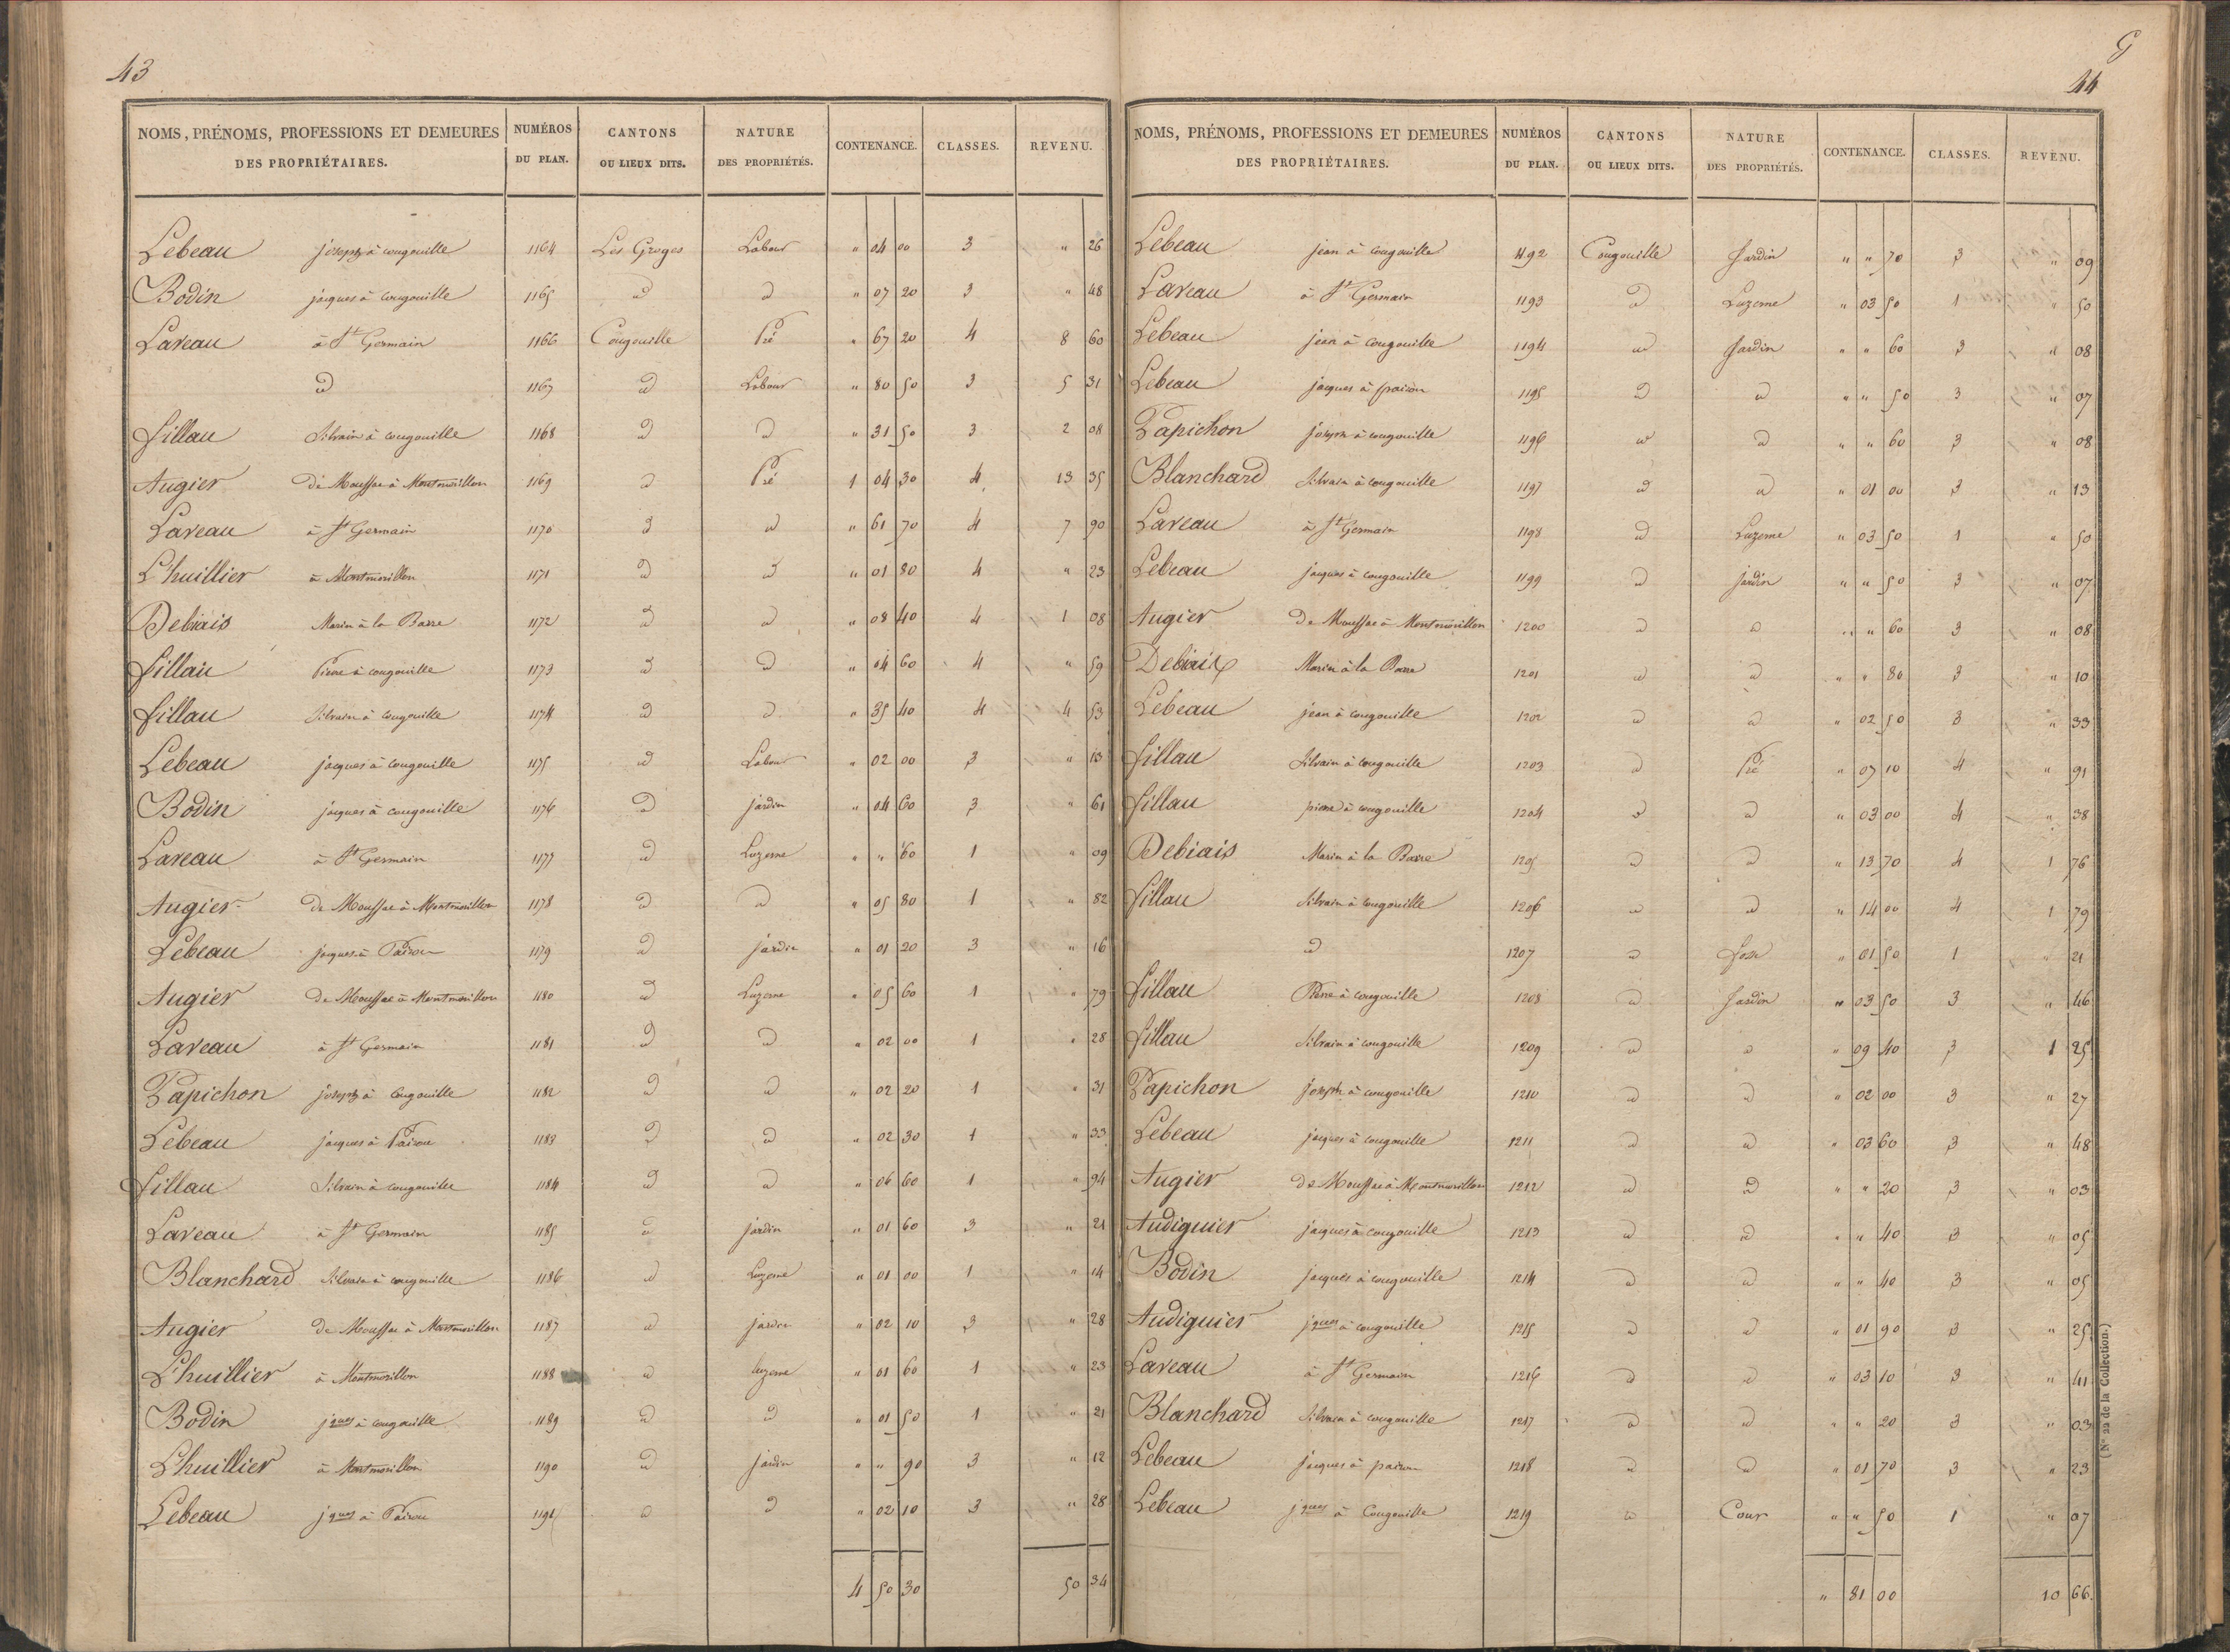 43
NOMS, PRÉNOMS, PROFESSIONS ET DEMEURES DES PROPRIÉTAIRES. NUMÉROS DU PLAN. CANTONS OU LIEUX DITS. NATURE DES PROPRIÉTÉS. CONTENANCE. CLASSES. REVENU.
Lebeau joseph à cougouille 1164 Les Groges Labour " 04 00 3 " 26
Bodin jacques à cougouille 1165 d d " 07 20 3 " 48
Laveau à St Germain 1166 Cougouille Pré " 67 20 4 8 60
d 1167 d Labour " 80 50 3 5 31
fillau Silvain à cougouille 1168 d d " 31 50 3 2 08
Augier de Moussac à Montmorillon 1169 d Pré 1 04 30 4 13 35
Laveau à St Germain 1170 d d " 61 70 4 7 90
L'huillier à Montmorillon 1171 d d " 01 80 4 " 23
Debiais Marin à la Barre 1172 d d " 08 40 4 1 08
fillau Pierre à cougouille 1173 d d " 04 60 4 " 59
fillau Silvain à cougouille 1174 d d " 35 40 4 4 53
Lebeau jacques à cougouille 1175 d Labour " 02 00 3 " 13
Bodin jacques à cougouille 1176 d jardin " 04 60 3 " 61
Laveau à St Germain 1177 d Luzerne " " 60 1 " 09
Augier de Moussac à Montmorillon 1178 d d " 05 80 1 " 82
Lebeau jacques à 1179 d jardin " 01 20 3 " 16
Augier de Moussac à Montmorillon 1180 d Luzerne " 05 60 1 " 79
Laveau à St Germain 1181 d d " 02 00 1 " 28
Papichon joseph à cougouille 1182 d d " 02 20 1 " 31
Lebeau jacques à 1183 d d " 02 30 1 " 33
fillau Silvain à cougouille 1184 d d " 06 60 1 " 94
Laveau à St Germain 1185 d jardin " 01 60 3 " 21
Blanchard Silvain à cougouille 1186 d Luzerne " 01 00 1 " 14
Augier de Moussac à Montmorillon 1187 d jardin " 02 10 3 " 28
L'huillier à Montmorillon 1188 d luzerne " 01 60 1 " 23
Bodin jques à cougouille 1189 d d " 01 50 1 " 21
L'huillier à Montmorillon 1190 d jardin " " 90 3 " 12
Lebeau jques à 1191 d d " 02 10 3 " 28
4 50 30 50 34
G
44
NOMS, PRÉNOMS, PROFESSIONS ET DEMEURES DES PROPRIÉTAIRES. NUMÉROS DU PLAN. CANTONS OU LIEUX DITS. NATURE DES PROPRIÉTÉS. CONTENANCE. CLASSES. REVENU.
Lebeau jean à cougouille 1192 Cougouille Jardin " " 70 3 " 09
Laveau à St Germain 1193 d Luzerne " 03 50 1 " 50
Lebeau jean à cougouille 1194 d Jardin " " 60 3 " 08
Lebeau jacques à 1195 d d " " 50 3 " 07
Papichon joseph à cougouille 1196 d d " " 60 3 " 08
Blanchard Silvain à cougouille 1197 d d " 01 00 3 " 13
Laveau à St Germain 1198 d Luzerne " 03 50 1 " 50
Lebeau jacques à cougouille 1199 d jardin " " 50 3 " 07
Augier de Moussac à Montmorillon 1200 d d " " 60 3 " 08
Debiais Marin à la Barre 1201 d d " " 80 3 " 10
Lebeau jean à cougouille 1202 d d " 02 50 3 " 33
fillau Silvain à cougouille 1203 d Pré " 07 10 4 " 91
fillau pierre à cougouille 1204 d d " 03 00 4 " 38
Debiais Marin à la Barre 1205 d d " 13 70 4 1 76
fillau Silvain à cougouille 1206 d d " 14 00 4 1 79
d 1207 d " 01 50 1 " 21
fillau Pierre à cougouille 1208 d Jardin " 03 50 3 " 46
fillau Silvain à cougouille 1209 d d " 09 40 3 1 25
Papichon joseph à cougouille 1210 d d " 02 00 3 " 27
Lebeau jacques à cougouille 1211 d d " 03 60 3 " 48
Augier de Moussac à Montmorillon 1212 d d " " 20 3 " 03
Audiguier jacques à cougouille 1213 d d " " 40 3 " 05
Bodin jacques à cougouille 1214 d d " " 40 3 " 05
Audiguier jques à cougouille 1215 d d " 01 90 3 " 25
Laveau à St Germain 1216 d d " 03 10 3 " 41
Blanchard Silvain à cougouille 1217 d d " " 20 3 " 03
Lebeau jacques à 1218 d d " 01 70 3 " 23
Lebeau jques à Cougouille 1219 d Cour " " 50 1 " 07
" 81 00 10 66
(No 22 de la Collection.)